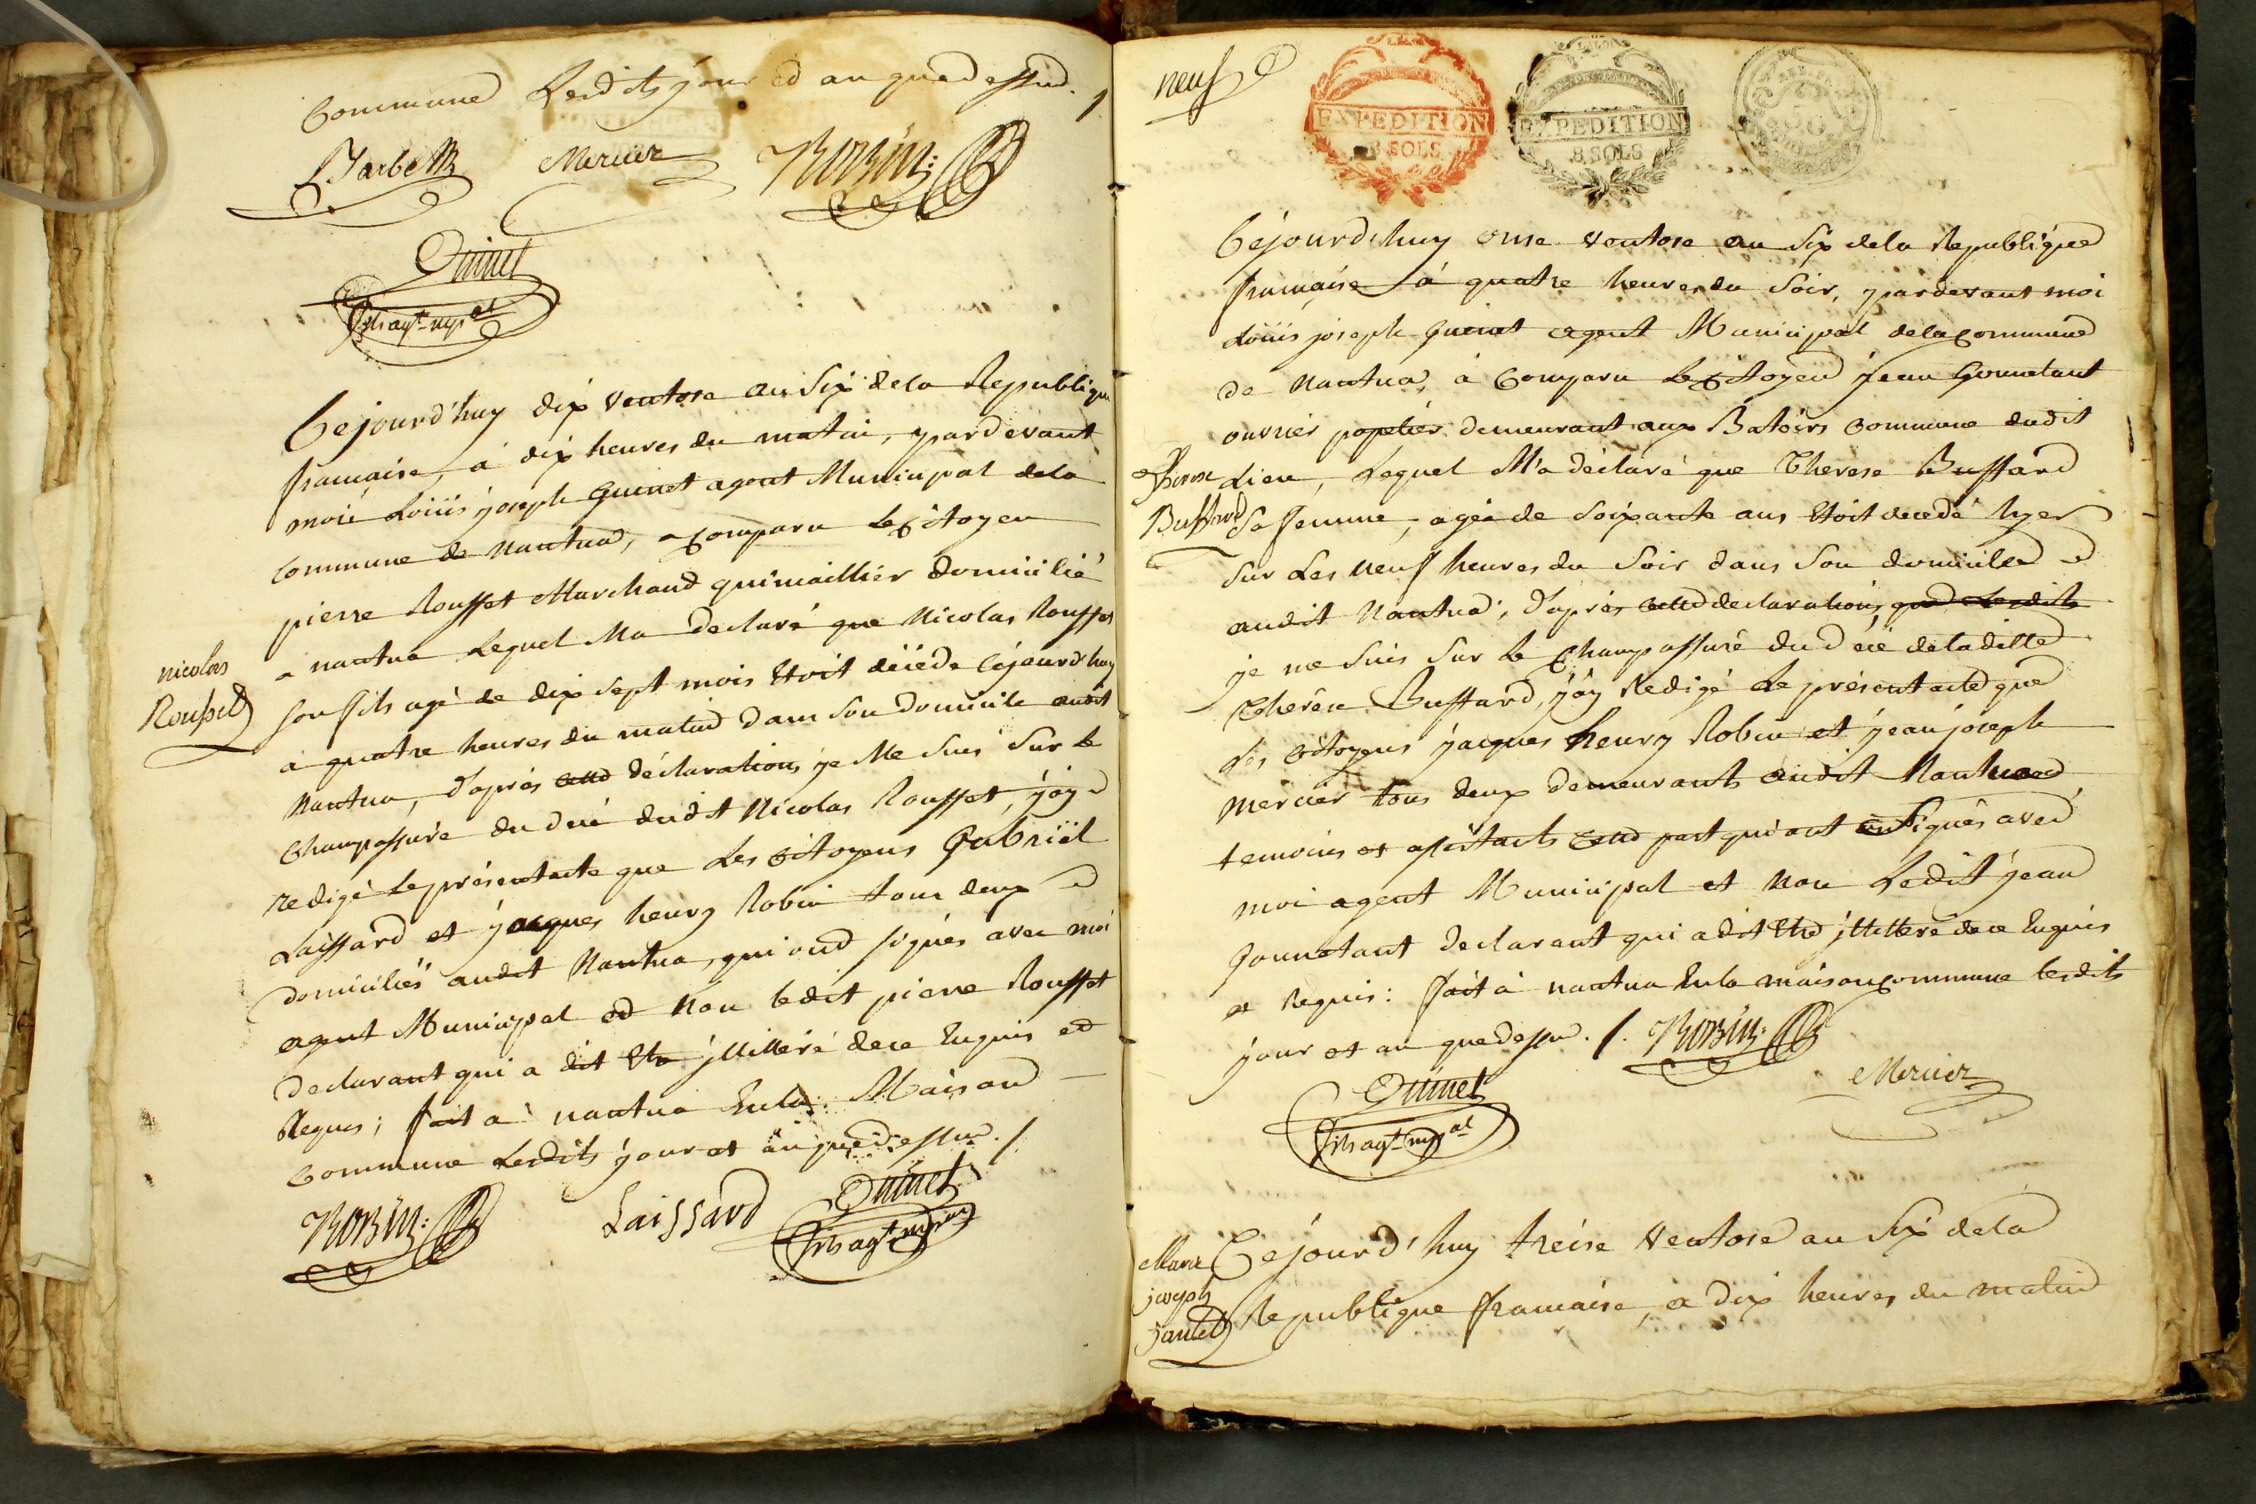 Commune Lesdits jour et an que dessus./
Jarbe
Mercier
Robin:
Quinet
fils agt. mpal
Cejourd'huy dix Ventose an Six de la Republique
française, à dix heures du matin, pardevant
moi Loüis joseph Quinet agent Municipal de la
commune de nantua, a Comparu le Citoyen
pierre Rousset Marchand quinaillier domicilié
nicolas
Rousset
a nantua Lequel Ma declaré que Nicolas Rousset
son fils agé de dix sept mois étoit décédé Céjourd'huy
a quatre heures du matin dans son domicile audit
Nantua, d'aprés cette déclaration, je Me suis sur le
Champ assuré du décé dudit Nicolas Rousset, j'ay
redigé le présent acte que Les Citoyens Gabriël
Laissard et jacques henry Robin tous deux
domiciliés audit Nantua, qui ont signés avec moi
agent Municipal et Non ledit pierre Rousset
declarant qui a dit etre jllitteré de ce Enquis et
Requis; fait a nantua En la Maison
commune Lesdits jour et an que dessus./
Robin:
Laissard
Quinet
fils agt. mpal
neuf
EXPEDITION
8 SOLS
EXPEDITION
8 SOLS
Céjourd'huy onse ventose an Six de la Republique
française à quatre heures du Soir, pardevant moi
Loüis joseph Quinet agent Municipal de la Commune
de Nantua, à Comparu le Citoyen jean Gounetant
ouvrier papetier demeurant aux Batoirs Commune dudit
Therese
Buffard
Lieu, Lequel M'a déclaré que Therese Buffard
Sa femme, agée de Soixante ans étoit decedé hyer
Sur Les neuf heures du Soir dans Son domicile
audit Nantua, d'aprés cette declaration, que Lesdits
je me suis sur le Champ assuré du décé de laditte
Thérése Buffard, j'ay Redigé le présent acte que
les citoyens jacques henry Robin et jean joseph
mercier tous deux demeurants audit Nantua
temoins et assistants cette part qui ont signés avec
moi agent Municipal et Non Ledit jean
Gounetant declarant qui a dit Etre jllitteré de ce Enquis
et Requis: fait à nantua En la maison Commune lesdits
jour et an que dessu./.
Robin:
Mercier
Quinet
fils agt. mpal
Marie
joseph
Céjourd'huy treise Ventose an Six de la
Republique française, a dix heures du matin